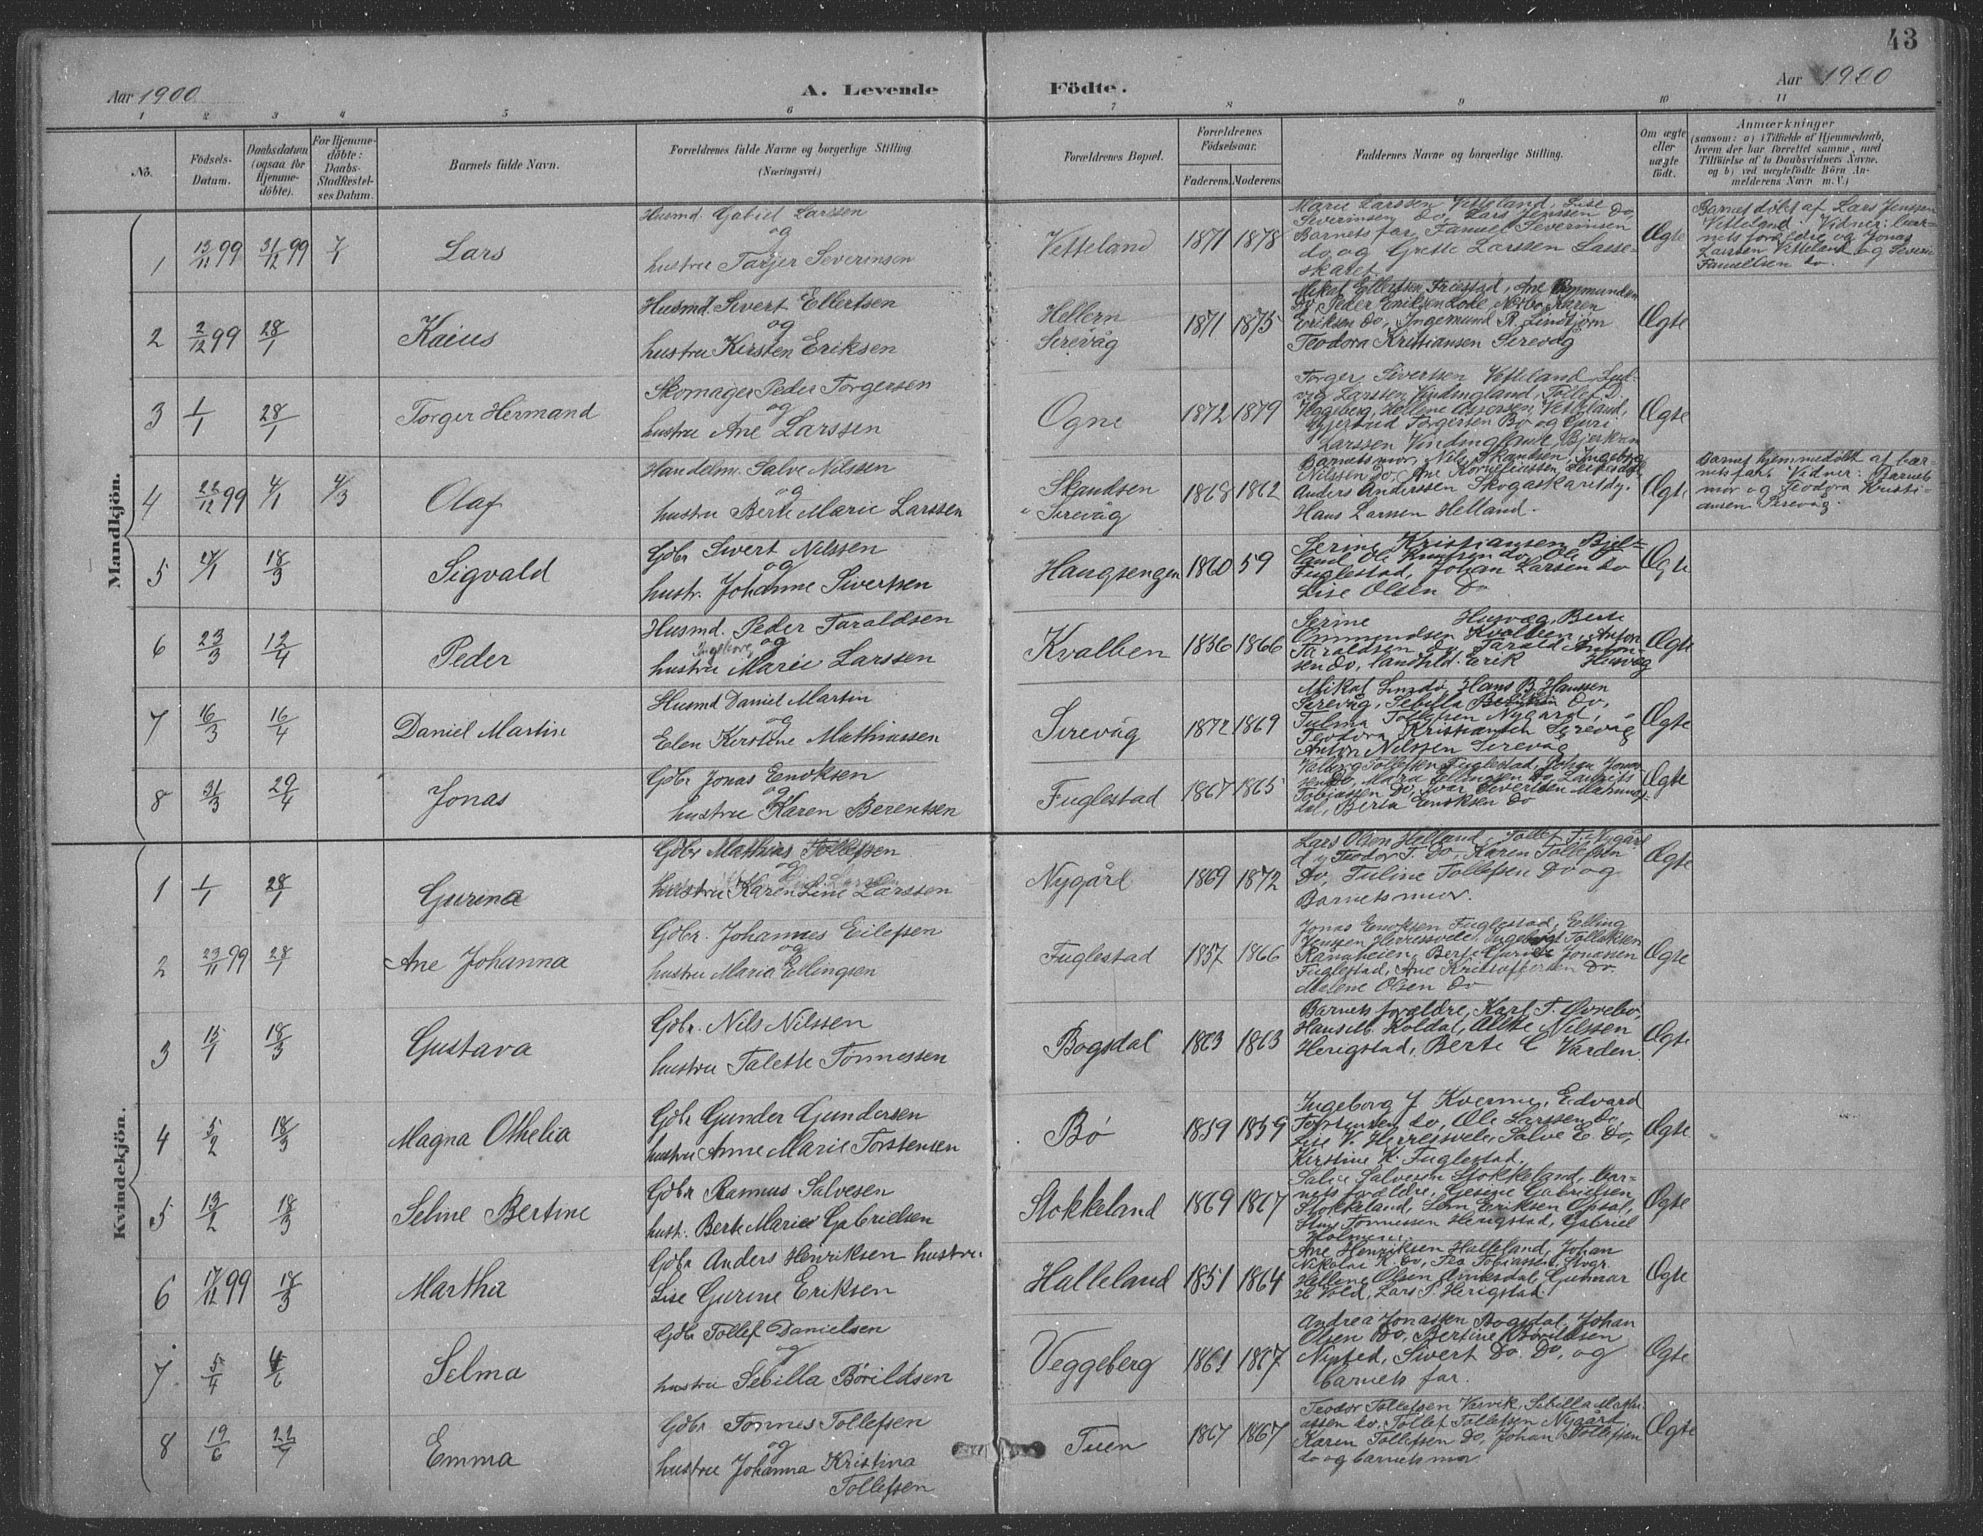 43
Aar 1900
A. Levende
Födte.
Aar 1900
1 2 3 4 5 6 7 8 9 10 11
No.
Födsels-
Datum.
Daabsdatum
(ogsaa for
Hjemme-
döbte).
For Hjemme-
döbte:
Daabs-
Stadfæstel-
ses Datum.
Barnets fulde Navn.
Forældrenes fulde Navne og borgerlige Stilling
(Næringsvei.)
Forældrenes Bopæl.
Forældrenes
Födselsaar.
Faderens. Moderens.
Faddernes Navne og borgerlige Stilling.
Om ægte
eller
uægte
födt.
Anmærkninger
(saasom: a) i Tilfælde af Hjemmedaab,
hvem der har forrettet samme, med
Tilföielse af to Daabsvidners Navne,
og b) ved uægtefödte Börn An-
melderens Navn m. V.)
Mandkjön.
1 13/11 99 31/12 99 7/1 Lars
Husmd. Gabiel Larssen
og
hustru Tarjer Severinsen
Vetteland 1871 1878
Marie Larssen Vetteland, Lise
Severinsen do, Lars Jenssen do,
Barnets far, Fanuel Severinsen
do, og Grette Larssen Lasse-
skaret
Ægte
Barnet döbt af Lars Jenssen
Vetteland. Vidner: bar-
nets forældre og Jonas
Larssen Vetteland og Severin
Fanuelsen do.
2 2/12 99 28/1 Kaius
Husmd. Sivert Ellertsen
og
hustru Kirsten Eriksen
Hellern
Sirevåg
1871 1875
Mikal Ellertsen Fræstad, Ane Ommundsen
do, Peder Eriksen Lode Nærbø, Karen
Eriksen do, Ingemund R. Lindtjørn
Teodora Kristiansen Sirevåg
Ægte
3 1/1 28/1 Torger Hermand
Skomager Peder Torgersen
og
hustru Ane Larssen
Ogne 1872 1879
Torger Sivertsen Vetteland, Lud-
vig Larssen Vindingland, Tollef D.
Veggeberg, Hellene Assersen Vetteland,
Gjertrud Torgersen Bø og Guri
Larssen Vindingland
Ægte
4 22/12 99 4/1 4/3 Olaf
Handelm. Salve Nilssen
og
hustru Berte Marie Larssen
Skandsen
Sirevåg
1868 1862
Barnets mor, Nils Skandsen, Ingeborg
Nilssen do, Ane Kornelïussen
Anders Anderssen Skogaskaret
Hans Larssen Helland.
Ægte
Barnet hjemmedöbt af bar-
nets far. Vidner: Barnets
mor og Teodora Kristi-
ansen Sirevåg.
5 27/1 18/3 Sigvald
Gdbr Sivert Nilssen
og
hustr. Johanne Sivertsen
Haugsengen 1860 59
Serine Kristiansen Bjel-
land Ole Knudsen do, Ole O.
Fuglestad, Johan Larsen do
Lise Olsen do
Ægte
6 23/3 12/4 Peder
Husmd. Peder Taraldsen
og
Ingeborg
hustru Marie Larssen
Kvalben 1836 1866
Serine Husvæg, Berte
Ommundsen Kvalbein, Anton
Taraldsen do, Tarald Anton-
sen do, landhdl. Erik Husvæg
Ægte
7 16/3 16/4 Daniel Martin
Husmd Daniel Martin
og
Elen Kirstine Mathiassen
Sirevåg 1872 1869
Mikal Hans B. Hanssen
Sirevåg, Sebilla do,
Tulma Tollefsen Nygård,
Teodora Kristiansen Sirevåg
Anton Nilssen Sirevåg
Ægte
8 31/3 29/4 Jonas
Gdbr Jonas Enoksen
og
hustru Karen Berentsen
Fuglestad 1867 1865
Valborg Tollefsen Fuglestad, Johan Jonas-
sen do, Mara Ellingsen do, Laurits
Tobiassen do, Ivar Sivertsen
dal, Berta Enoksen do
Ægte
Kvindekjön.
1 1/1 28/1 Gurina
Gdbr Mathias Tollefsen
og
hustru Karen Line Larssen
Nygård 1869 1872
Lars Olsen Helland, Tollef T. Nygård
Teodor T. do, Karen Tollefsen
do, Tuline Tollefsen do og
Barnets mor.
Ægte
2 23/11 99 28/1 Ane Johanna
Gdbr. Johannes Eilefsen
og
hustru Maria Ellingsen
Fuglestad 1857 1866
Jonas Enoksen Fuglestad, Elling
Jenssen Herressvele, Ingeborg Tolleksen
Ranaheien, Berte Jonassen
Fuglestad, Ane Kristoffersen do
Malene Olsen do
Ægte
3 15/1 18/3 Gustava
Gdbr. Nils Nilssen
hustru Talette Tønnessen
Bogsdal 1863 1863
Barnets forældre, Karl T. Ovrebø,
Koldal, Nilssen
Herigstad, Berte C Varden
Ægte
4 5/2 18/3 Magna Othelia
Gdbr Gunder Gundersen
hustru Anne Marie Torstensen
Bø 1859 1859
Ingeborg J Kverme, Edvard
Torstensen do, Ole Larssen do,
Lise V. Herressvele, Salve E. do,
Kirstine K. Fuglestad.
Ægte
5 13/2 18/3 Seline Bertine
Gdbr Rasmus Salvesen
hust. Berte Marie Gabrielsen
Stokkeland 1869 1867
Salve Salvesen Stokkeland, bar-
nets forældre, Gesine Gabrielsen
Stokkeland, Sem Eriksen Opsal,
Tønnessen Herigstad, Gabriel
Holmen
Ægte
6 17/12 99 18/3 Martha
Gdbr Anders Henriksen hustru
Lise Gurine Eriksen
Halleland 1851 1864
Ane Henriksen Halleland, Johan
Nikolai K. do, Tea Tobiassen
Hellene Olsen Gunnar
H Vold, Lars T. Herigstad.
Ægte
7 5/4 4/6 Selma
Gdbr Tollef Danielsen
og
hustru Sebilla Børiltdsen
Veggeberg 1861 1867
Andrea Jonassen Bogsdal, Johan
Olsen do, Bertine Børildsen
Nysted, Sivert do. do, og
barnets far.
Ægte
8 19/6 22/7 Emma
Gdbr Tønnes Tollefsen
og
hustru Johanna Kristina
Tollefsen
Tuen 1867 1867
Teodor Tollefsen Varvik, Sebilla Mathi-
assen do, Tollef Tollefsen Nygård,
Karen Tollefsen do, Johan Tollefsen
do og barnets mor
Ægte